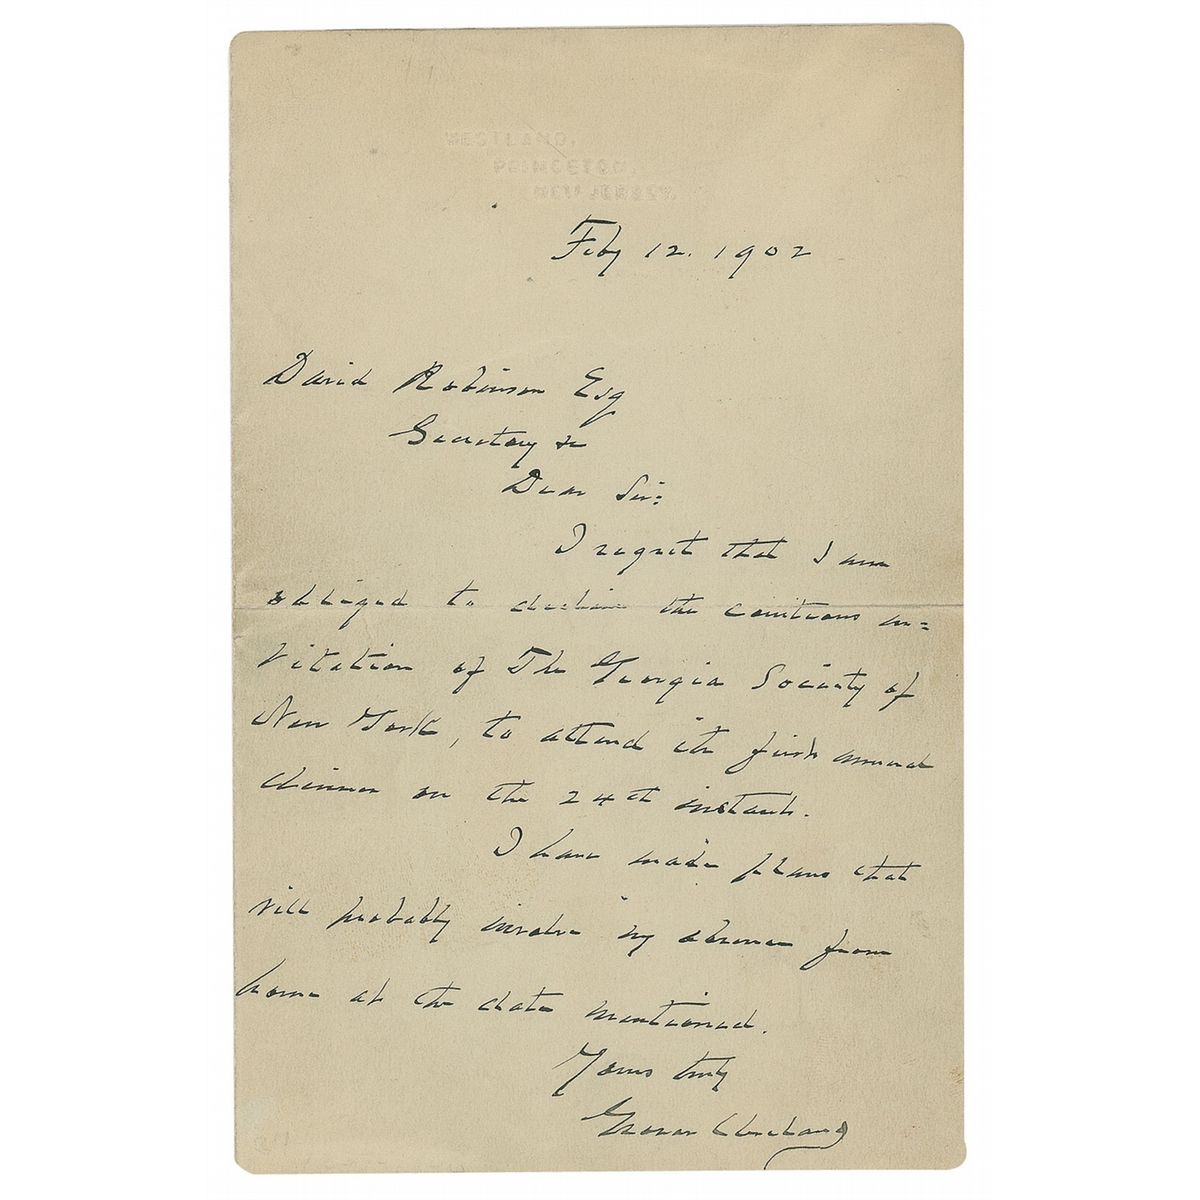 WESTLAND,
PRINCETON,
NEW JERSEY.
Feby 12. 1902
David Robinson Esq
Secretary &c
Dear Sir:
I regret that I am
obliged to decline the courteous in=
vitation of The Georgia Society of
New York, to attend its first annual
dinner on the 24th instant.
I have made plans that
will probably involve my absence from
home at the date mentioned.
Yours truly
Grover Cleveland